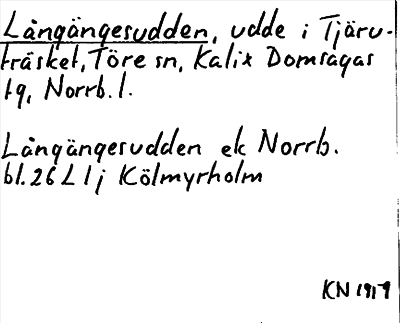 Långängesudden, udde i Tjäru-
träsket, Töre sn, Kalix Domsagas
tg, Norrb. l.
Långängesudden ek Norrb.
bl. 26 L 1 j Kölmyrholm
KN 1917